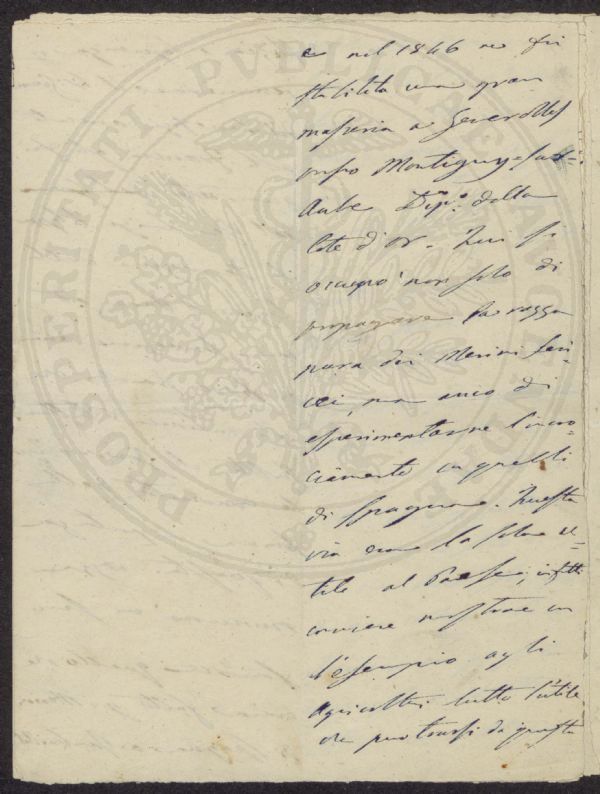 e nel 1846 ne fu
stabilita una gran
masseria a Gevrolles
Montigny-sur-
Aube Dip.o della
Côte d'Or. Qui si
occupò non solo di
propagare la razza
pura dei Merini seri-
cei, ma anco di
esperimentarne l'incro-
ciamento con quelli
di Spagna. Questa
via era la sola u-
tile al Paese, infatti
conviene mostrare con
l'esempio agli
agricoltori tutto l'utile
che può trarsi da questa
PROSPERITATI PVBLICAE